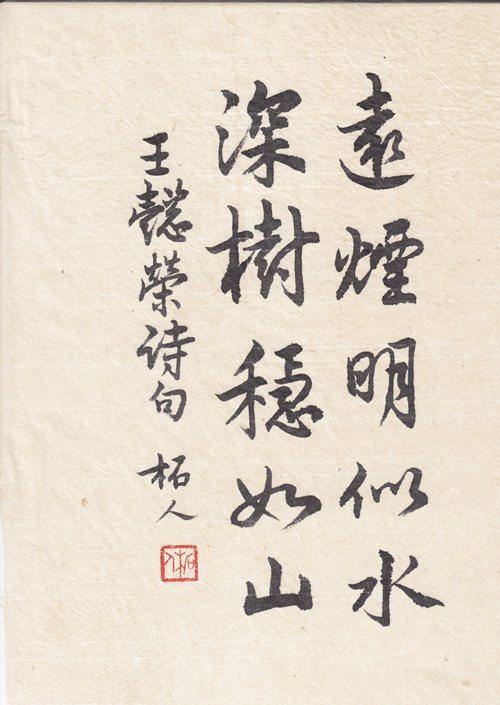 遠煙明似水
深樹穩如山
王懿榮诗句 柘人
柘人